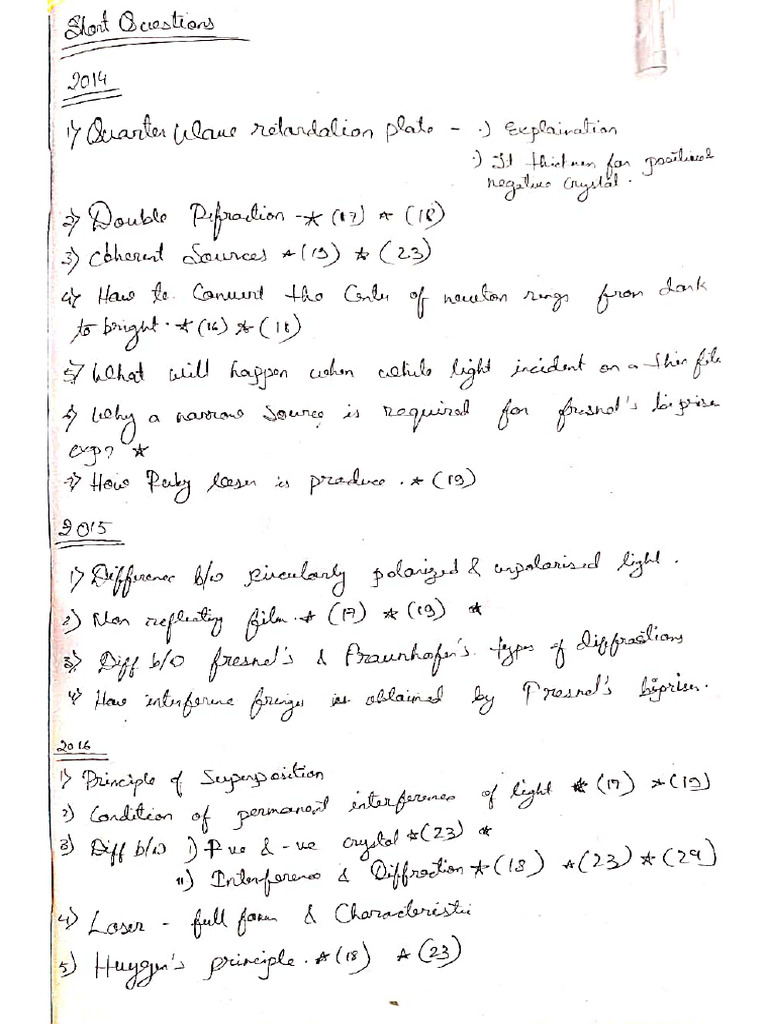 Short Questions
2014
1) Quarter Wave retardation plate - .) Explaination
.) It thickness for positive &
negative crystal.
2) Double Refraction - * (17) * (18)
3) Coherent Sources * (19) * (23)
4) How to Convert the Center of newton rings from dark
to bright. * (16) * (18)
5) What will happen when white light incident on a thin film
6) Why a narrow source is required for fresnel's biprism
exp? *
7) How Ruby laser is produce. * (19)
2015
1) Difference b/w circularly polarized & unpolarised light.
2) Non reflecting film. * (17) * (19) *
3) Diff b/w fresnel's & Fraunhofer's types of diffractions
4) How interference fringes is obtained by Fresnel's biprism.
2016
1) Principle of Superposition
2) Condition of permanent interference of light * (17) * (19)
3) Diff b/w i) +ve & -ve crystal * (23) *
ii) Interference & Diffraction * (18) * (23) * (24)
4) Laser - full form & Characteristic
5) Huygen's principle. * (18) * (23)